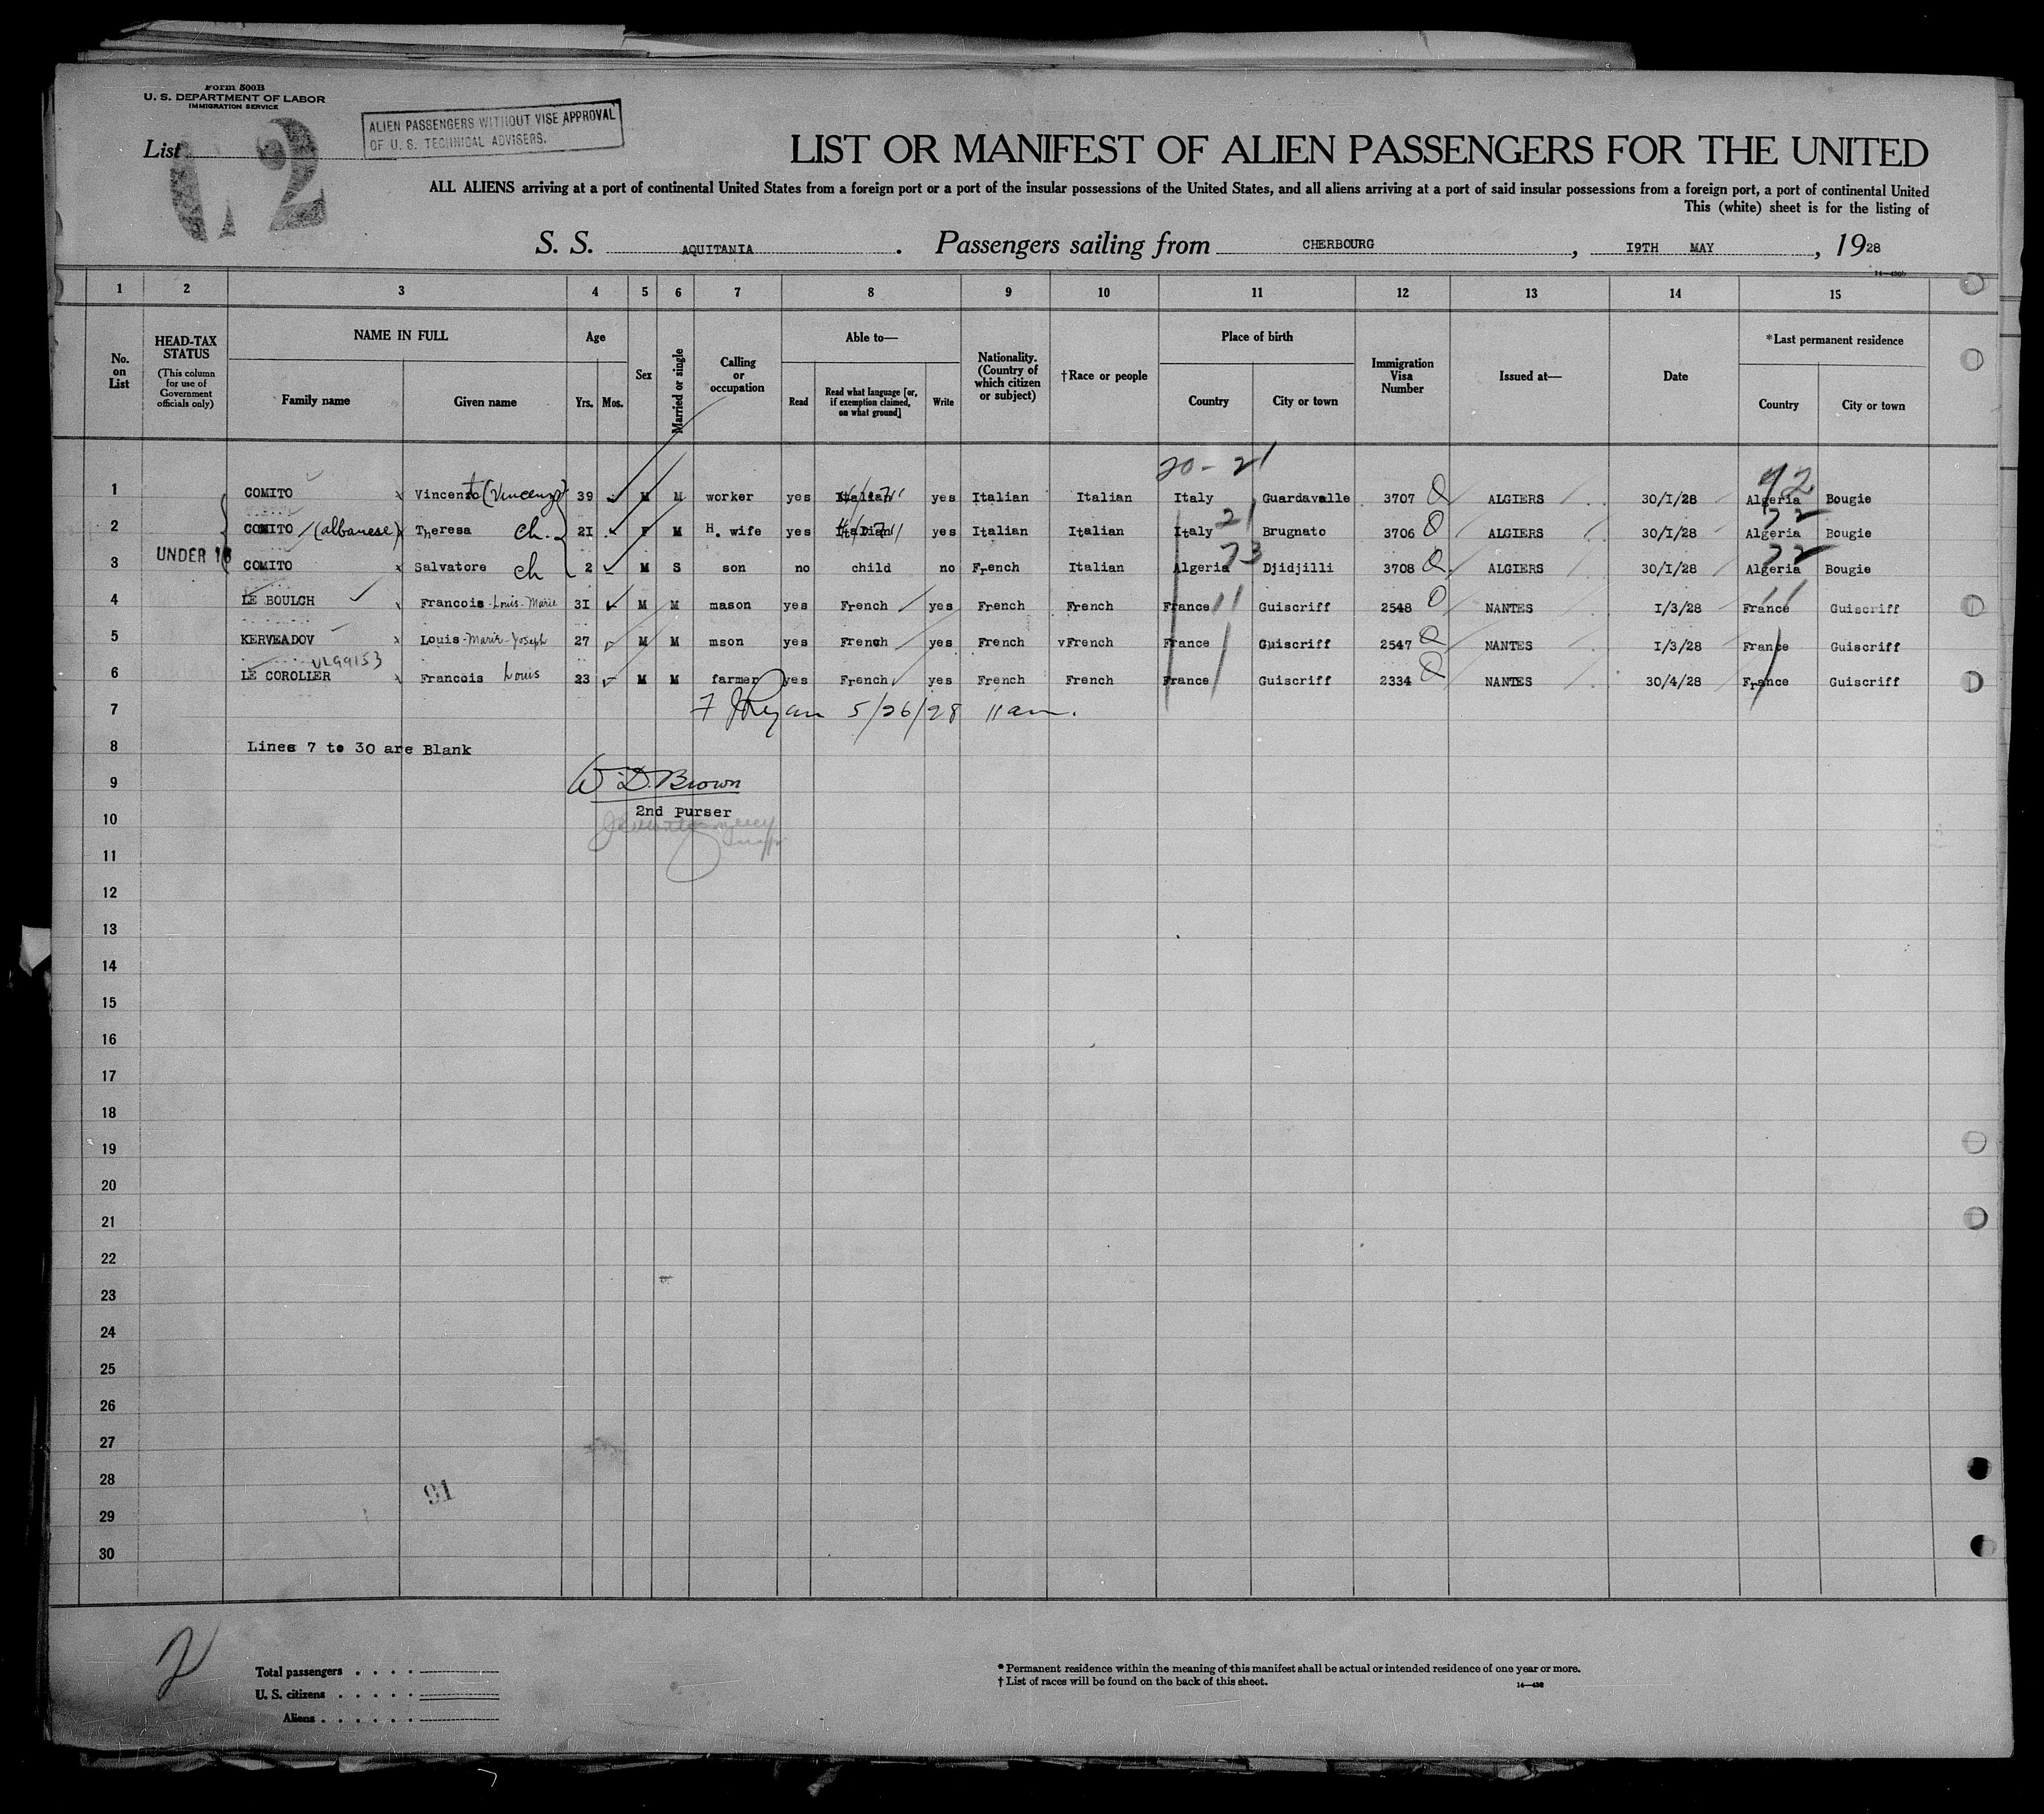 Form 500B
U. S. DEPARTMENT OF LABOR
IMMIGRATION SERVICE
List
ALIEN PASSENGERS WITHOUT VISE APPROVAL
OF U. S. TECHNICAL ADVISERS.
LIST OR MANIFEST OF ALIEN PASSENGERS FOR THE UNITED
ALL ALIENS arriving at a port of continental United States from a foreign port or a port of the insular possessions of the United States, and all aliens arriving at a port of said insular possessions from a foreign port, a port of continental United
This (white) sheet is for the listing of
S. S. AQUITANIA. Passengers sailing from CHERBOURG, I9TH MAY, 1928
1 2 3 4 5 6 7 8 9 10 11 12 13 14 15
No. on List
HEAD-TAX STATUS (This column for use of Government officials only)
NAME IN FULL
Family name Given name
Age
Yrs. Mos.
Sex
Married or single
Calling or occupation
Able to—
Read
Read what language [or, if exemption claimed, on what ground]
Write
Nationality. (Country of which citizen or subject)
†Race or people
Place of birth
Country City or town
Immigration Visa Number
Issued at—
Date
*Last permanent residence
Country City or town
20-21
1 COMITO Vincento (Vincenzo) 39 M M worker yes Italian yes Italian Italian Italy Guardavalle 3707 ALGIERS 30/I/28 Algeria Bougie
2 COMITO (albanese) Theresa ch. 2I F M H. wife yes Italian yes Italian Italian Italy 21 Brugnato 3706 ALGIERS 30/I/28 Algeria Bougie
UNDER 16
3 COMITO Salvatore ch 2 M S son no child no French Italian Algeria 73 Djidjilli 3708 ALGIERS 30/I/28 Algeria Bougie
4 LE BOULCH Francois-Louis-Marie 3I M M mason yes French yes French French France 11 Guiscriff 2548 NANTES I/3/28 France Guiscriff
5 KERVEADOV Louis-Marie-Joseph 27 M M mson yes French yes French vFrench France Guiscriff 2547 NANTES I/3/28 France Guiscriff
6 LE COROLLER Francois Louis 23 M M farmer yes French yes French French France Guiscriff 2334 NANTES 30/4/28 France Guiscriff
7 F J Ryan 5/26/28 11am.
8 Lines 7 to 30 are Blank
9 W. D. Brown
10 2nd purser
11
12
13
14
15
16
17
18
19
20
21
22
23
24
25
26
27
28
91
29
30
2
Total passengers
U. S. citizens
Aliens
* Permanent residence within the meaning of this manifest shall be actual or intended residence of one year or more.
† List of races will be found on the back of this sheet.